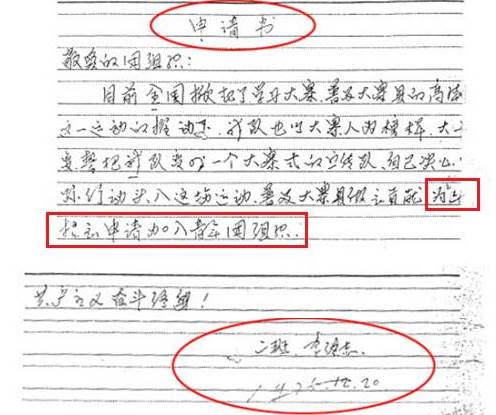 申请书
敬爱的团组织:
目前全国掀起了学大寨、普及大寨县的高潮
这一运动的推动下,我队也以大寨人为榜样,大
变,誓把我队变成一个大寨式的宣传队,自己决心
行动投入这场运动,普及大寨县做出贡献,为
提出申请加入青年团组织.
共产主义奋斗终身!
二班.李
1975-12.20